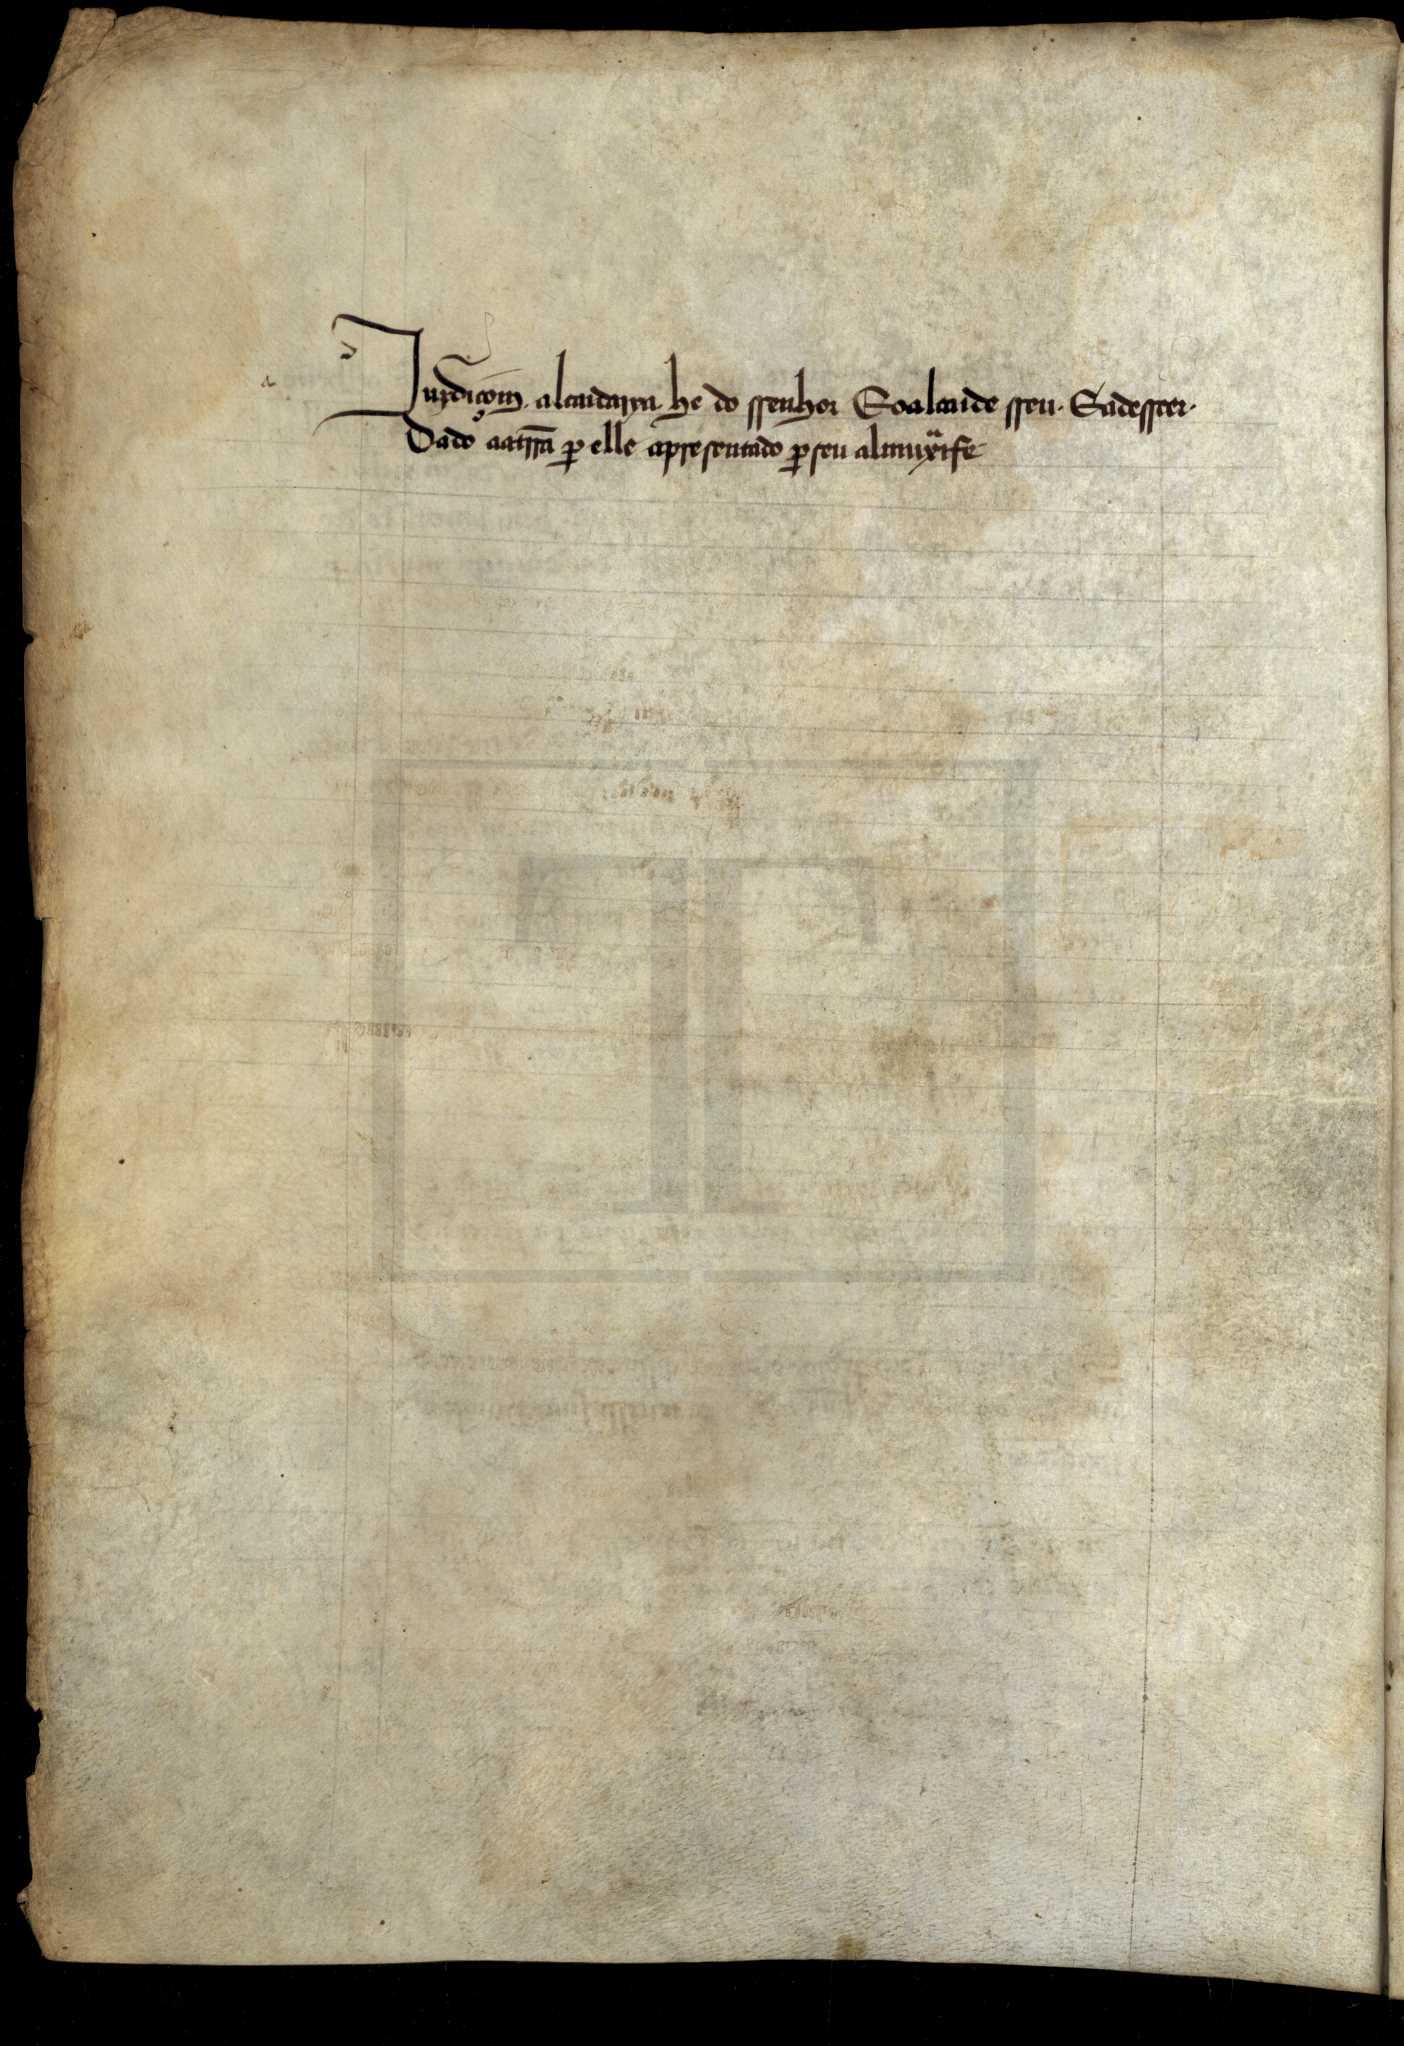 Jurdiçom. alcaidarya. he do ssenhor E o alcaide sseu. E a desseer.
Dado aatrrã ꝑ elle apresentado ꝑ seu almuxarife